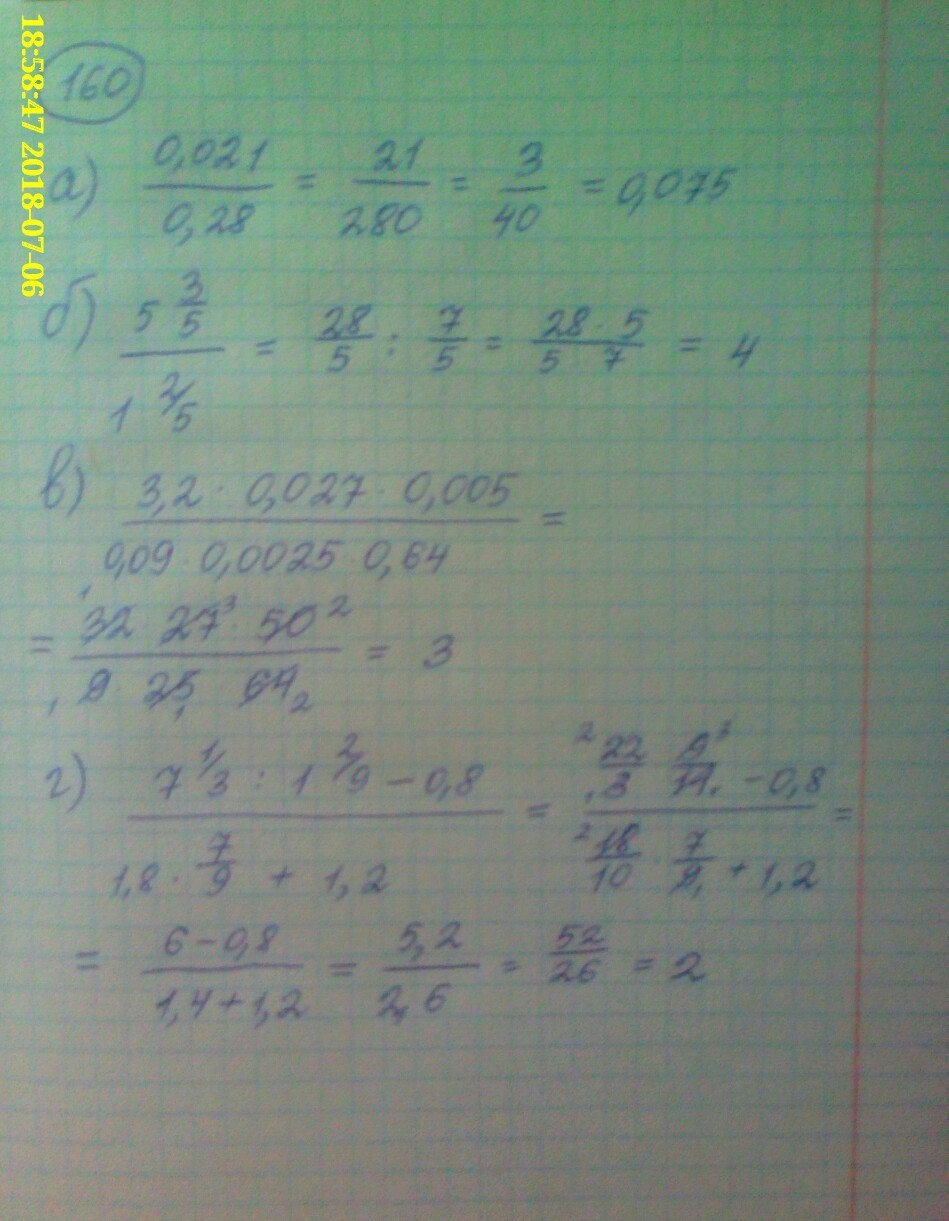 18:58:47 2018-07-06
160
а) 0,021/0,28 = 21/280 = 3/40 = 0,075
б) 5 3/5 / 1 2/5 = 28/5 : 7/5 = 28·5/5 7 = 4
в) 3,2 · 0,027 · 0,005 / 0,09 · 0,0025 · 0,64 =
= 1 32 27 3 · 50 2 / 1 9 · 25 1 64 2 = 3
г) 7 1/3 : 1 2/9 – 0,8 / 1,8 · 7/9 + 1,2 = 2 22/1 3 9 3/11 – 0,8 / 2 18/10 · 7/9 1 + 1,2 =
= 6 – 0,8 / 1,4 + 1,2 = 5,2/2,6 = 52/26 = 2